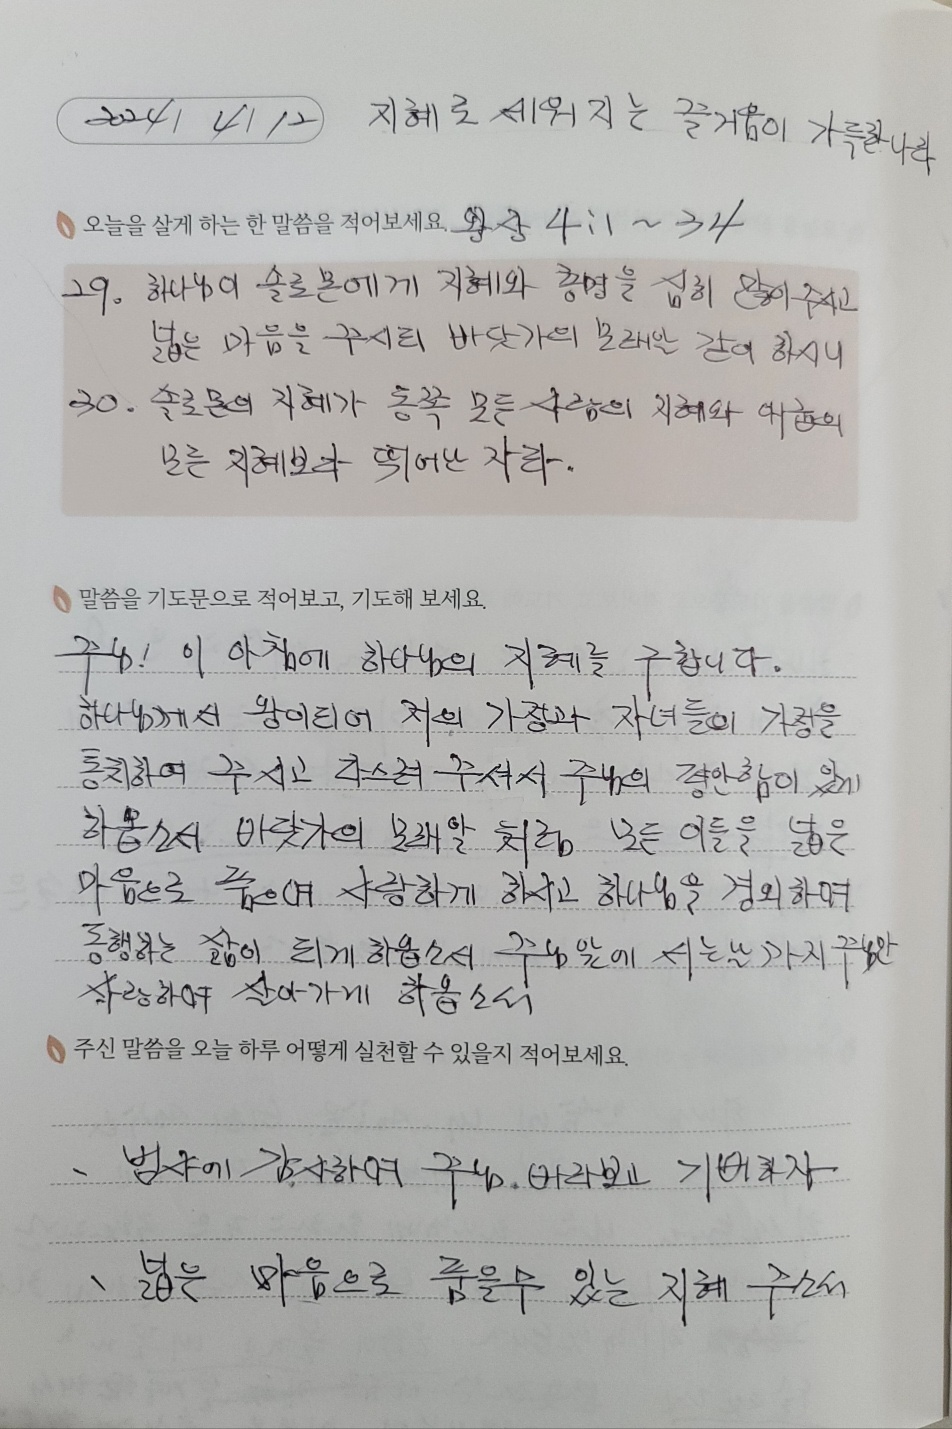 2024 4 12 지혜로 세워지는 즐거움이 가득한 나라
오늘을 살게 하는 한 말씀을 적어보세요. 왕상 4:1 ~ 34
29. 하나님이 솔로몬에게 지혜와 총명을 심히 많이 주시고
넓은 마음을 주시되 바닷가의 모래알 같이 하시니
30. 솔로몬의 지혜가 동쪽 모든 사람의 지혜와 애굽의
모든 지혜보다 뛰어난 자라.
말씀을 기도문으로 적어보고, 기도해 보세요.
주님! 이 아침에 하나님의 지혜를 구합니다.
하나님께서 왕이되어 저의 가정과 자녀들의 가정을
통치하여 주시고 다스려 주셔서 주님의 평안함이 있게
하옵소서 바닷가의 모래알 처럼 모든 이들을 넓은
마음으로 품으며 사랑하게 하시고 하나님을 경외하며
동행하는 삶이 되게 하옵소서 주님 앞에 서는 날 까지 주님만
사랑하며 살아가게 하옵소서
주신 말씀을 오늘 하루 어떻게 실천할 수 있을지 적어보세요.
、 범사에 감사하며 주님. 바라보고 기뻐하자
、 넓은 마음으로 품을수 있는 지혜 주소서